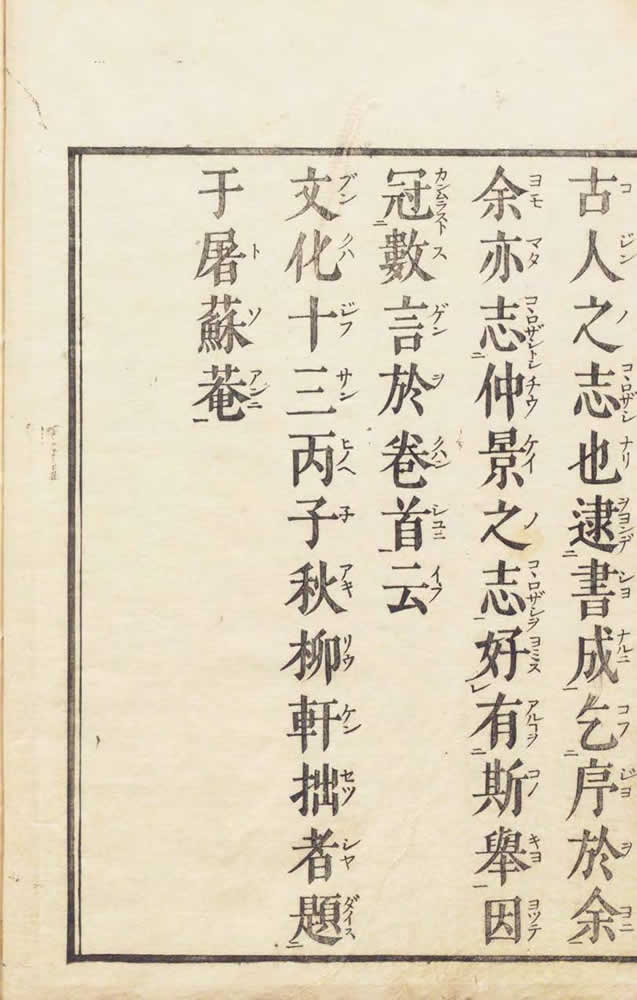 古人之志也逮書成乞序於余
余亦志仲景之志好有斯舉因
冠數言於卷首云
文化十三丙子秋柳軒拙者題
于屠蘇菴